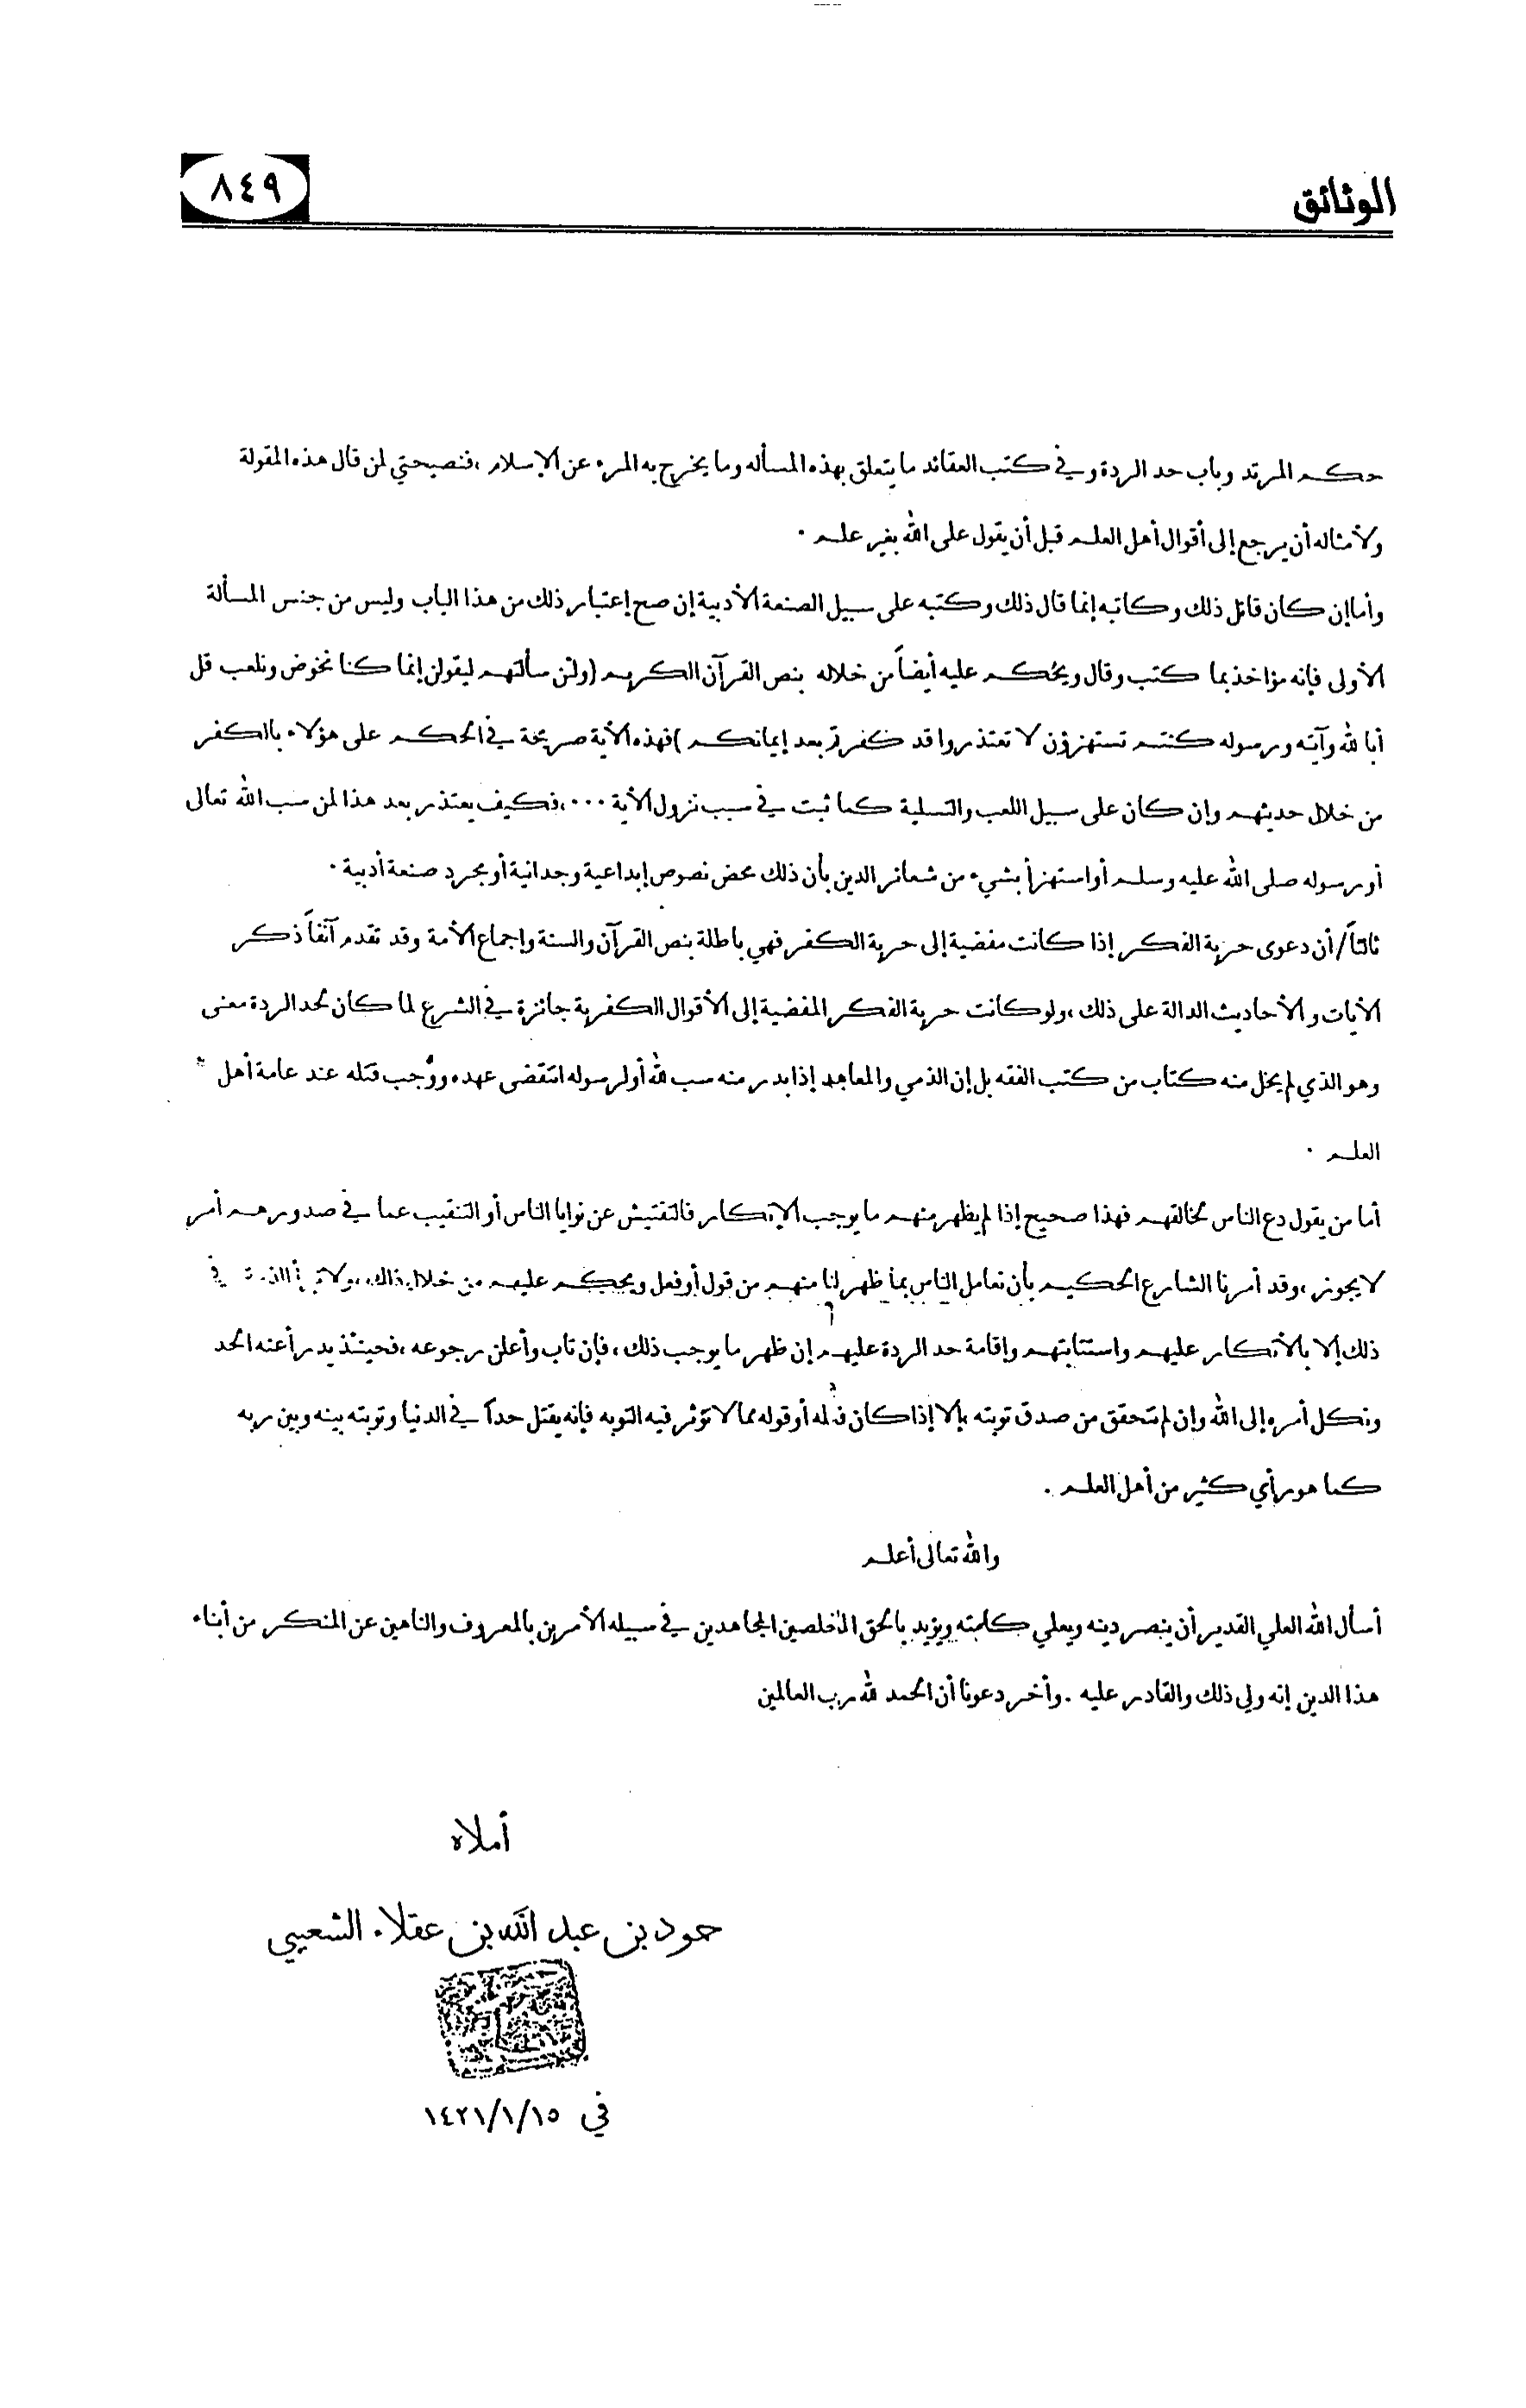 الوثائق
٨٤٩
حكم المرتد وباب حد الردة وفي كتب العقائد ما يتعلق بهذه المسأله وما يخرج به المرء عن الإسلام ،فنصيحتي لمن قال هذه المقولة
ولأمثاله أن يرجع إلى أقوال أهل العلم قبل أن يقول على الله بغير علم .
وأما إن كان قائل ذلك وكاتبه إنما قال ذلك وكتبه على سبيل الصنعة الأدبية إن صح إعتبار ذلك من هذا الباب وليس من جنس المسألة
الأولى فإنه مؤاخذ بما كتب وقال ويحُكم عليه أيضاً من خلاله بنص القرآن الكريم (ولئن سألتهم ليقولن إنما كنا نخوض ونلعب قل
أبا لله وآيته ورسوله كنتم تستهزؤن لا تعتذروا قد كفرتم بعد إيمانكم )فهذه الأية صريحة في الحكم على هؤلاء بالكفر
من خلال حديثهم وإن كان على سبيل اللعب والتسلية كما ثبت في سبب نزول الأية ... ،فكيف يعتذر بعد هذا لمن سب الله تعالى
أو رسوله صلى الله عليه وسلم أو استهزأ بشيء من شعائر الدين بأن ذلك محض نصوص إبداعية وجدانية أو مجرد صنعة أدبية .
ثالثاً/ أن دعوى حرية الفكر إذا كانت مفضية إلى حرية الكفر فهي باطلة بنص القرآن والسنة وإجماع الأمة وقد تقدم آنفاً ذكر
الأيات والأحاديث الدالة على ذلك ،ولو كانت حرية الفكر المفضية إلى الأقوال الكفرية جائزة في الشرع لما كان لحد الردة معنى
وهو الذي لم يخل منه كتاب من كتب الفقه بل إن الذمي والمعاهد إذا بدر منه سب لله أو لرسوله انتقضى عهده ووُجب قتله عند عامة أهل
العلم .
أما من يقول دع الناس لخالقهم فهذا صحيح إذا لم يظهر منهم ما يوجب الإنكار فالتفتيش عن نوايا الناس أو التنقيب عما في صدورهم أمر
لا يجوز ،وقد أمرنا الشارع الحكيم بأن نعامل الناس بما ظهر لنا منهم من قول أو فعل ويحكم عليهم من خلال ذلك، في
ذلك إلا بالأنكار عليهم واستتابتهم وإقامة حد الردة عليهم إن ظهر ما يوجب ذلك ، فإن تاب وأعلن رجوعه ،فحينئذ يدرأ عنه الحد
ونكل أمره إلى الله وإن لم نتحقق من صدق توبته إلا إذا كان فعله أو قوله مما لا تؤثر فيه التوبه فإنه يقتل حداً في الدنيا وتوبته بينه وبين ربه
كما هو رأي كثير من أهل العلم .
والله تعالى أعلم
أسأل الله العلي القدير أن ينصر دينه ويعلي كلمته ويؤيد بالحق المخلصين المجاهدين في سبيله الأمرين بالمعروف والناهين عن المنكر من أبناء
هذا الدين إنه ولي ذلك والقادر عليه . وأخر دعونا أن الحمد لله رب العالمين
أملاه
حمود بن عبد الله بن عقلاء الشعيبي
في ١٤٢١/١/١٥